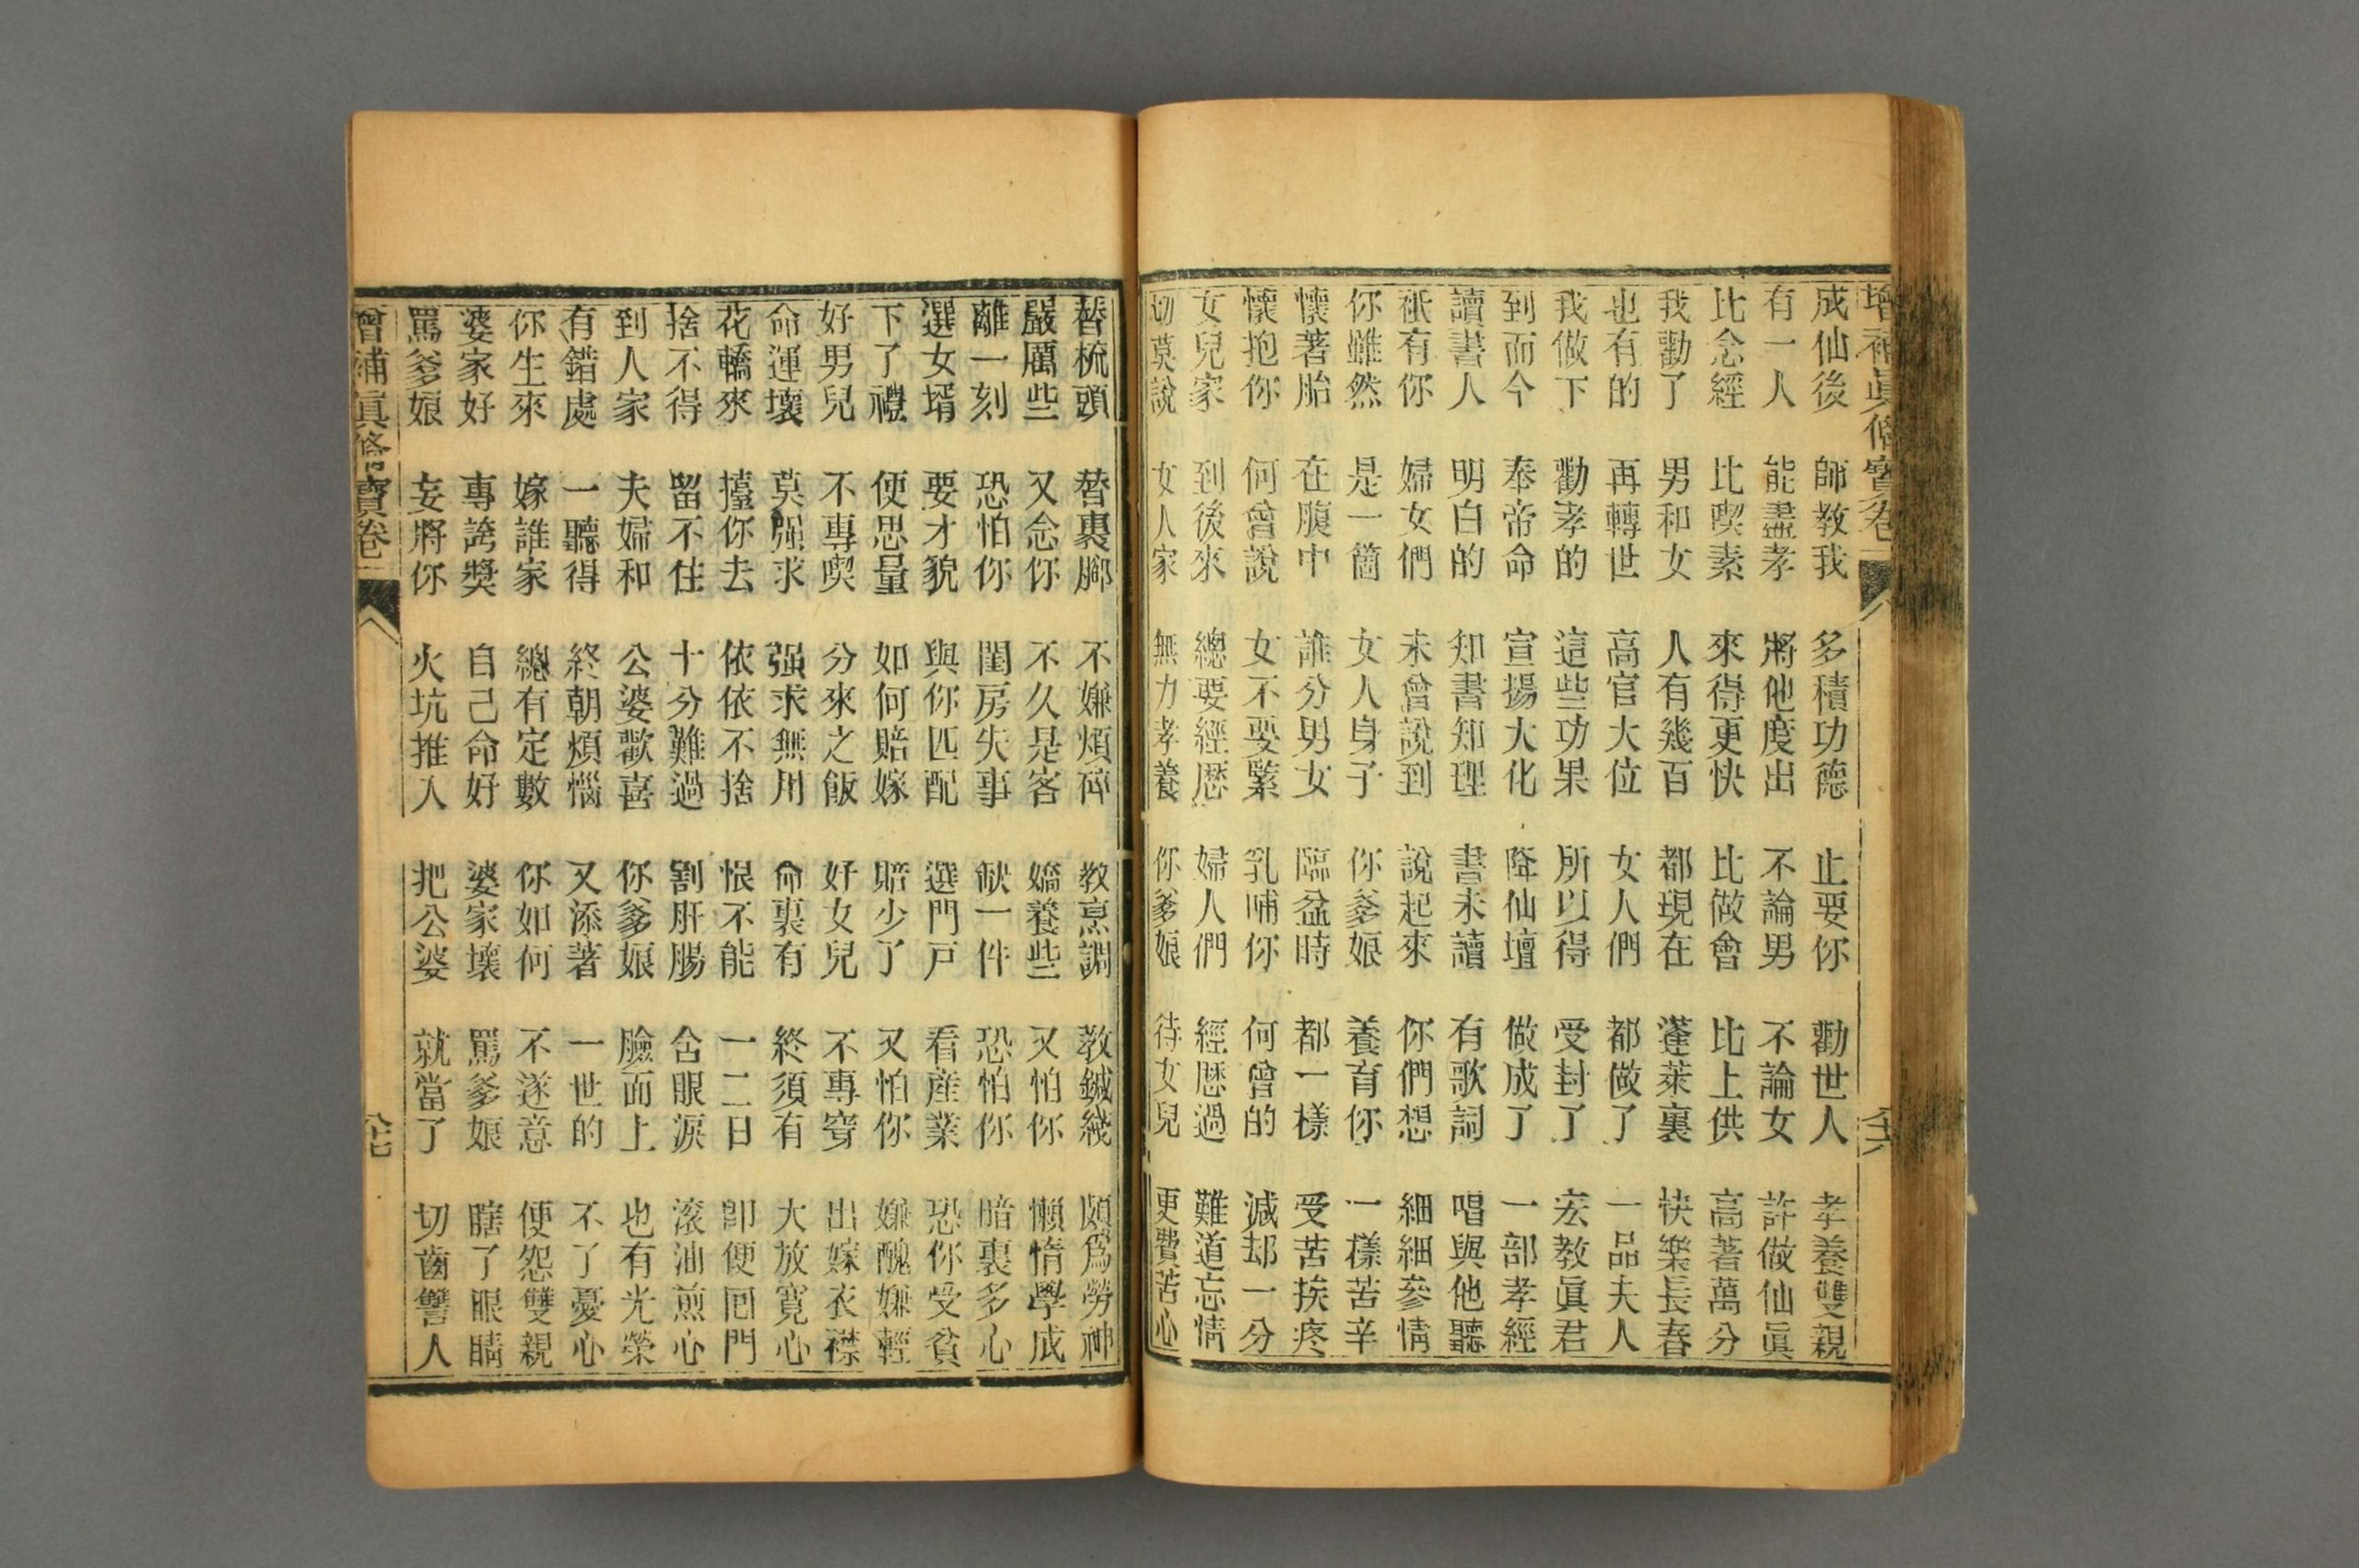 增補眞修寶卷
成仙後 師教我 多積功德 止要你 勸世人 孝養雙親
有一人 能盡孝 將他度出 不論男 不論女 許做仙眞
比念經 比喫素 來得更快 比做會 比上供 高著萬分
我勸了 男和女 人有幾百 都現在 蓬萊裏 快樂長春
也有的 再轉世 高官大位 女人們 都做了 一品夫人
我做下 勸孝的 這些功果 所以得 受封了 宏教眞君
到而今 奉帝命 宣揚大化 降仙壇 做成了 一部孝經
讀書人 明白的 知書知理 書未讀 有歌詞 唱與他聽
祇有你 婦女們 未曾說到 說起來 你們想 細細參情
你雖然 是一箇 女人身子 你爹娘 養育你 一樣苦辛
懷著胎 在腹中 誰分男女 臨盆時 都一樣 受苦挨疼
懷抱你 何曾說 女不要緊 乳哺你 何曾的 減却一分
女兒家 到後來 總要經歷 婦人們 經歷過 難道忘情
切莫說 女人家 無力孝養 你爹娘 待女兒 更費苦心
替梳頭 替裹腳 不嫌煩碎 教烹調 教鍼綫 頗爲勞神
嚴厲些 又念你 不久是客 嬌養些 又怕你 懶惰學成
離一刻 恐怕你 閨房失事 缺一件 恐怕你 暗裏多心
選女壻 要才貌 與你匹配 選門戸 看産業 恐你受貧
下了禮 便思量 如何賠嫁 賠少了 又怕你 嫌醜嫌輕
好男兒 不專喫 分來之飯 好女兒 不專穿 出嫁衣襟
命運壞 莫强求 强求無用 命裏有 終須有 大放寬心
花轎來 擡你去 依依不捨 恨不能 一二日 卽便回門
捨不得 留不住 十分難過 割肝腸 含眼淚 滾油煎心
到人家 夫婦和 公婆歡喜 你爹娘 臉面上 也有光榮
有錯處 一聽得 終朝煩惱 又添著 一世的 不了憂心
你生來 嫁誰家 總有定數 你如何 不遂意 便怨雙親
婆家好 專誇獎 自己命好 婆家壞 罵爹娘 瞎了眼睛
罵爹娘 妄將你 火坑推人 把公婆 就當了 切齒讐人
增補眞修寶卷